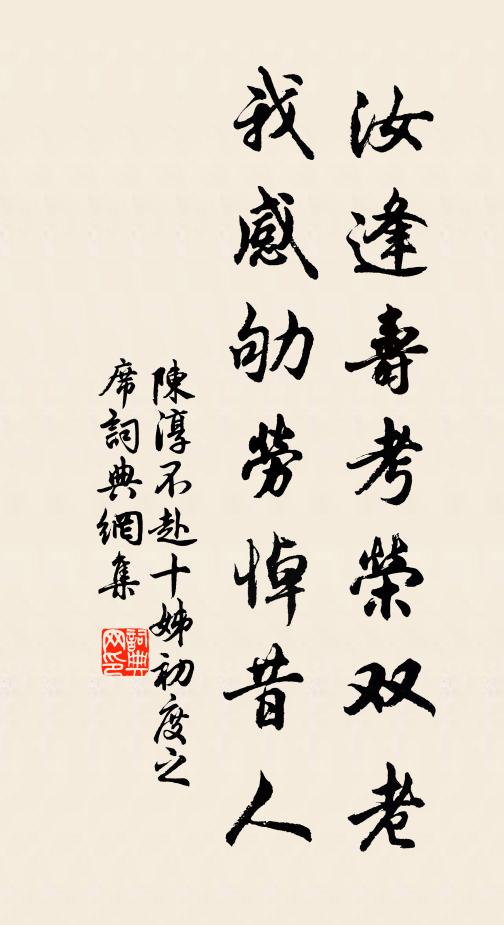 汝逢壽考榮双老
我感劬勞悼昔人
陳淳不赴十姊初度之
席詞典網集
詞典网印